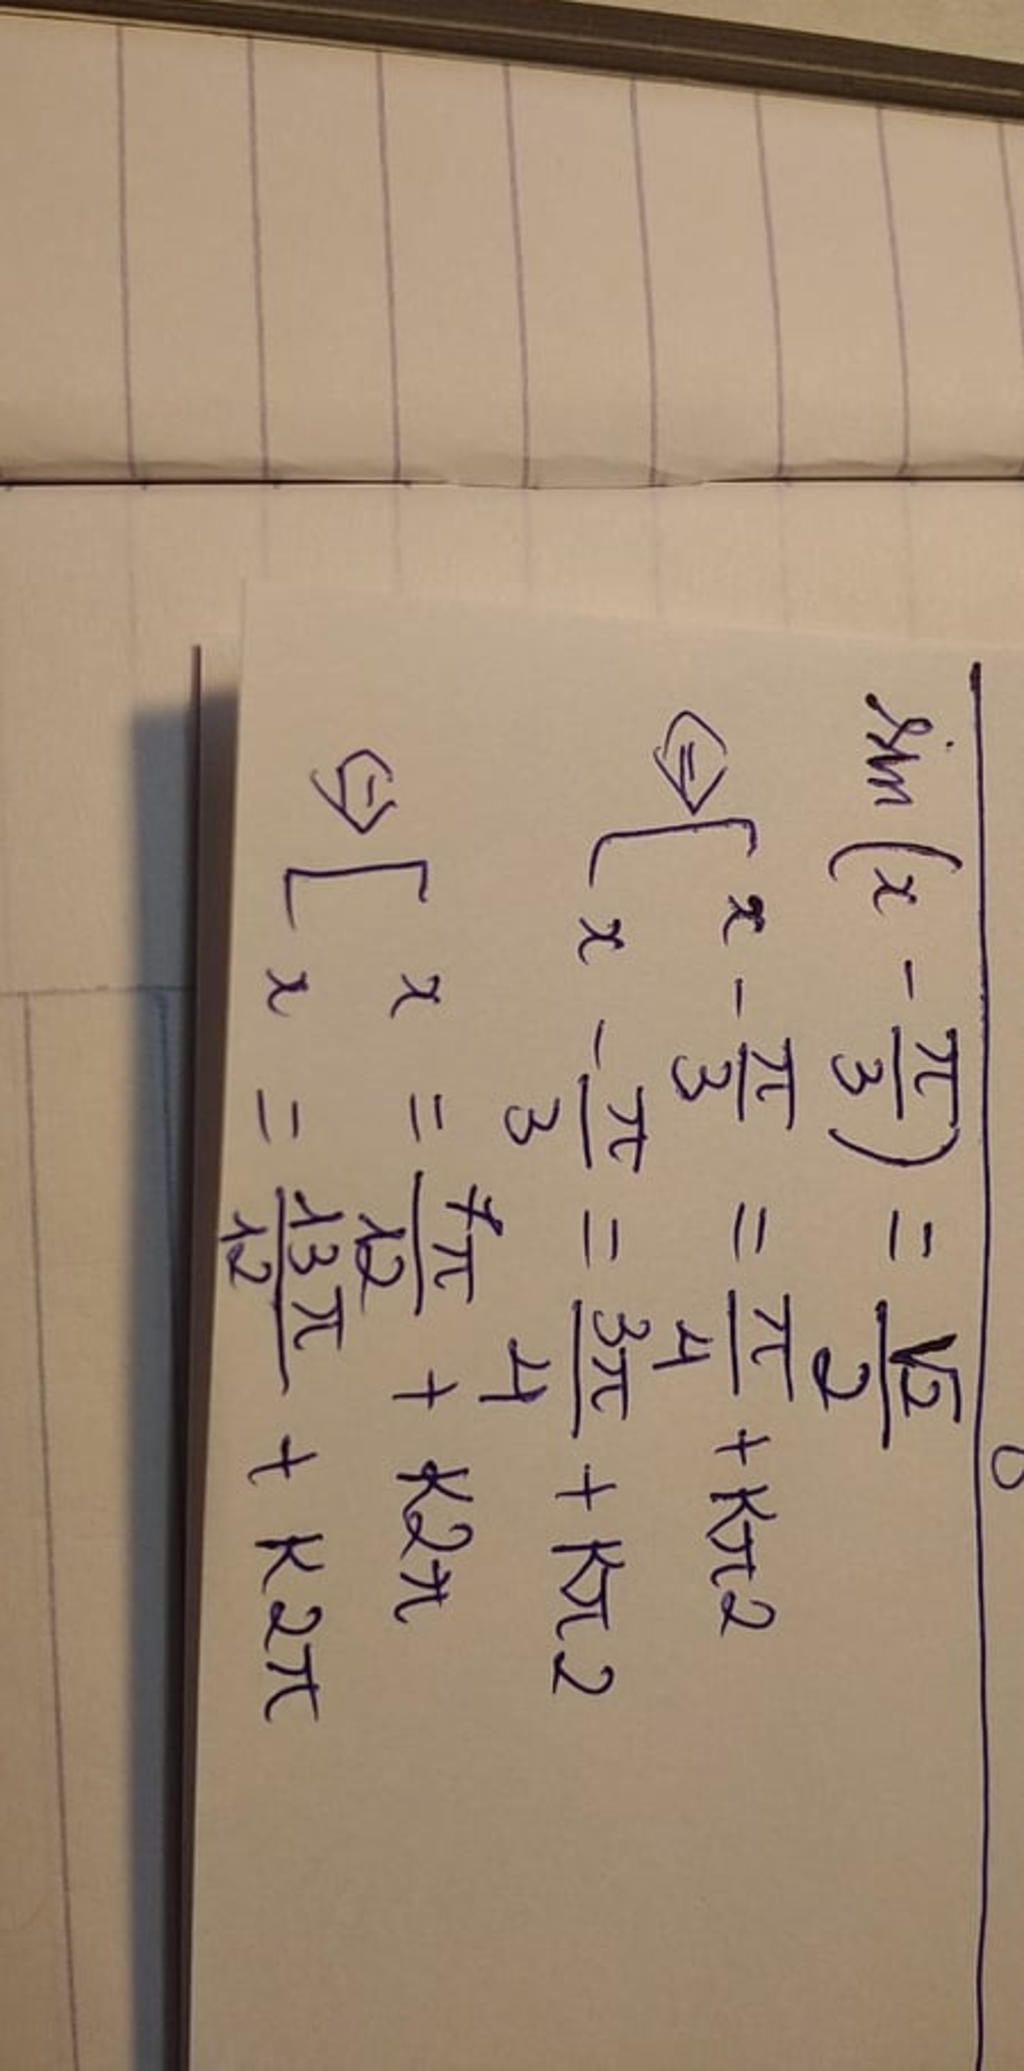 sin(x - π/3) = √2/2
⇔ [ x - π/3 = π/4 + kπ2
x - π/3 = 3π/4 + kπ2
⇔ [ x = 7π/12 + k2π
x = 13π/12 + k2π